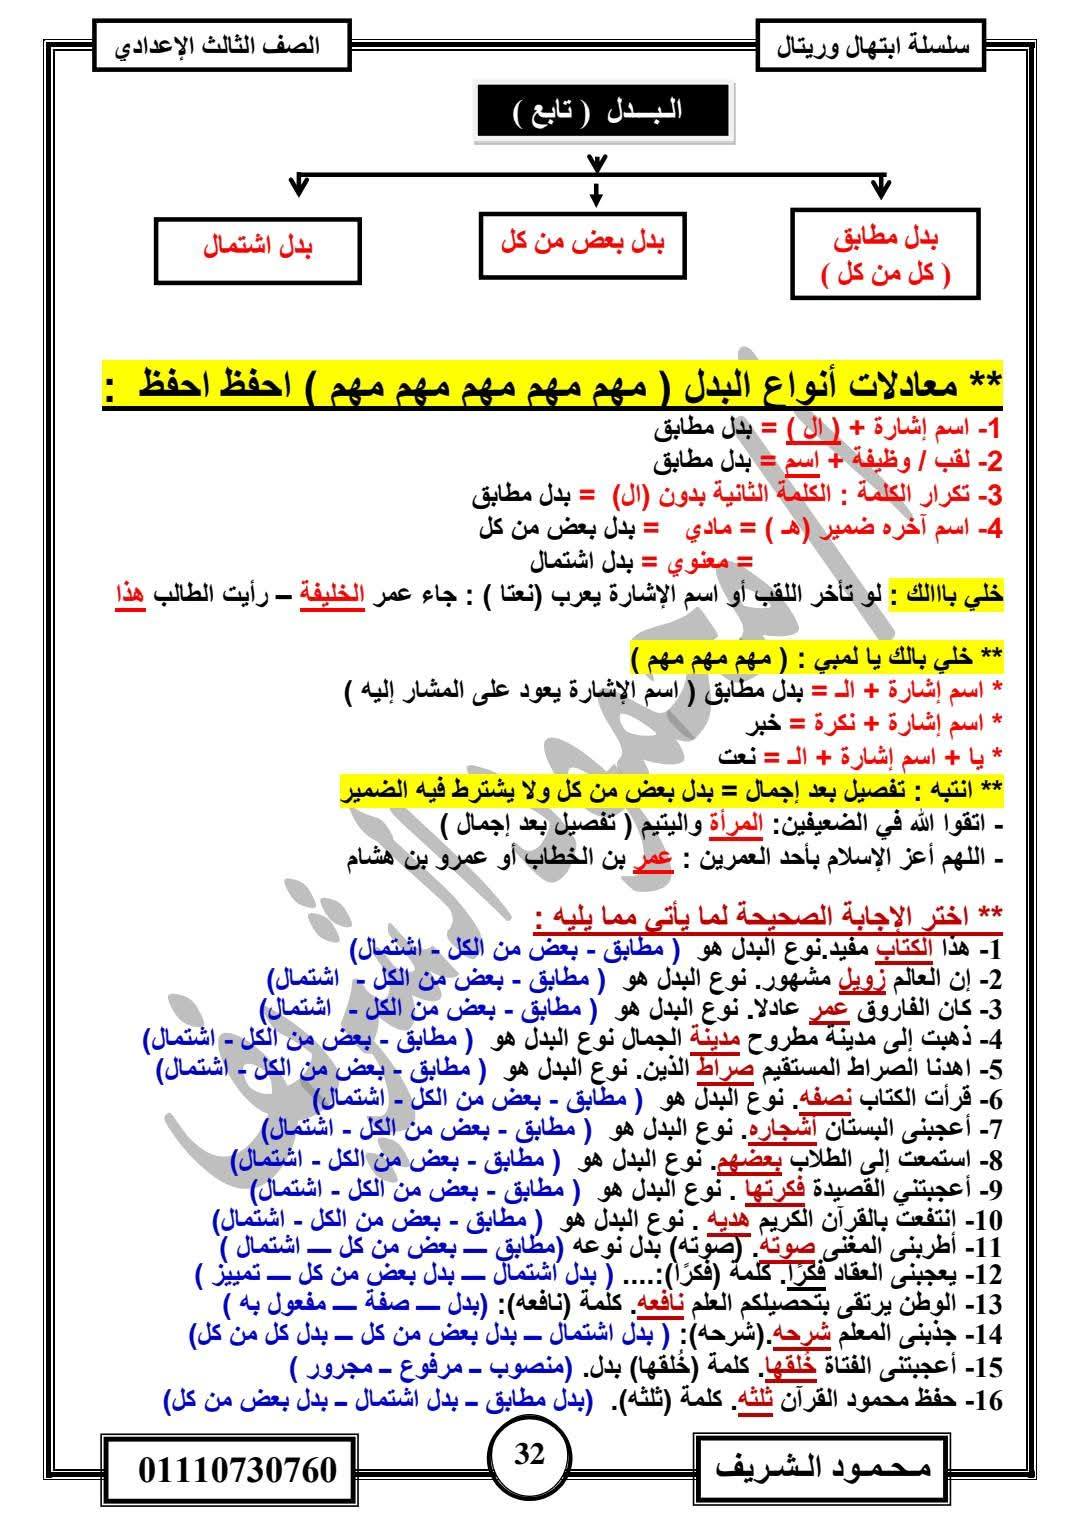 سلسلة ابتهال وريتال
الصف الثالث الإعدادي
الـبـــدل ( تابع )
بدل مطابق
( كل من كل )
بدل بعض من كل
بدل اشتمال
** معادلات أنواع البدل ( مهم مهم مهم مهم مهم ) احفظ احفظ :
1- اسم إشارة + ( ال ) = بدل مطابق
2- لقب / وظيفة + اسم = بدل مطابق
3- تكرار الكلمة : الكلمة الثانية بدون (ال) = بدل مطابق
4- اسم آخره ضمير (هـ ) = مادي = بدل بعض من كل
= معنوي = بدل اشتمال
خلي بااالك : لو تأخر اللقب أو اسم الإشارة يعرب (نعتا ) : جاء عمر الخليفة – رأيت الطالب هذا
** خلي بالك يا لمبي : ( مهم مهم مهم )
* اسم إشارة + الـ = بدل مطابق ( اسم الإشارة يعود على المشار إليه )
* اسم إشارة + نكرة = خبر
* يا + اسم إشارة + الـ = نعت
** انتبه : تفصيل بعد إجمال = بدل بعض من كل ولا يشترط فيه الضمير
- اتقوا الله في الضعيفين: المرأة واليتيم ( تفصيل بعد إجمال )
- اللهم أعز الإسلام بأحد العمرين : عمر بن الخطاب أو عمرو بن هشام
** اختر الإجابة الصحيحة لما يأتي مما يليه :
1- هذا الكتاب مفيد.نوع البدل هو ( مطابق - بعض من الكل - اشتمال)
2- إن العالم زويل مشهور. نوع البدل هو ( مطابق - بعض من الكل - اشتمال)
3- كان الفاروق عمر عادلا. نوع البدل هو ( مطابق - بعض من الكل - اشتمال)
4- ذهبت إلى مدينة مطروح مدينة الجمال نوع البدل هو ( مطابق - بعض من الكل - اشتمال)
5- اهدنا الصراط المستقيم صراط الذين. نوع البدل هو ( مطابق - بعض من الكل - اشتمال)
6- قرأت الكتاب نصفه. نوع البدل هو ( مطابق - بعض من الكل - اشتمال)
7- أعجبنى البستان أشجاره. نوع البدل هو ( مطابق - بعض من الكل - اشتمال)
8- استمعت إلى الطلاب بعضهم. نوع البدل هو ( مطابق - بعض من الكل - اشتمال)
9- أعجبتني القصيدة فكرتها . نوع البدل هو ( مطابق - بعض من الكل - اشتمال)
10- انتفعت بالقرآن الكريم هديه . نوع البدل هو ( مطابق - بعض من الكل - اشتمال)
11- أطربنى المغنى صوته. (صوته) بدل نوعه (مطابق ـــ بعض من كل ـــ اشتمال )
12- يعجبنى العقاد فكرًا. كلمة (فكرًا):.... ( بدل اشتمال ـــ بدل بعض من كل ـــ تمييز )
13- الوطن يرتقى بتحصيلكم العلم نافعه. كلمة (نافعه): (بدل ـــ صفة ـــ مفعول به )
14- جذبنى المعلم شرحه.(شرحه): ( بدل اشتمال ــ بدل بعض من كل ــ بدل كل من كل)
15- أعجبتنى الفتاة خُلقها. كلمة (خُلقها) بدل. (منصوب ــ مرفوع ــ مجرور )
16- حفظ محمود القرآن ثلثه. كلمة (ثلثه). (بدل مطابق ــ بدل اشتمال ــ بدل بعض من كل)
مـحـمـود الـشـريف
32
01110730760
محمود الشريف